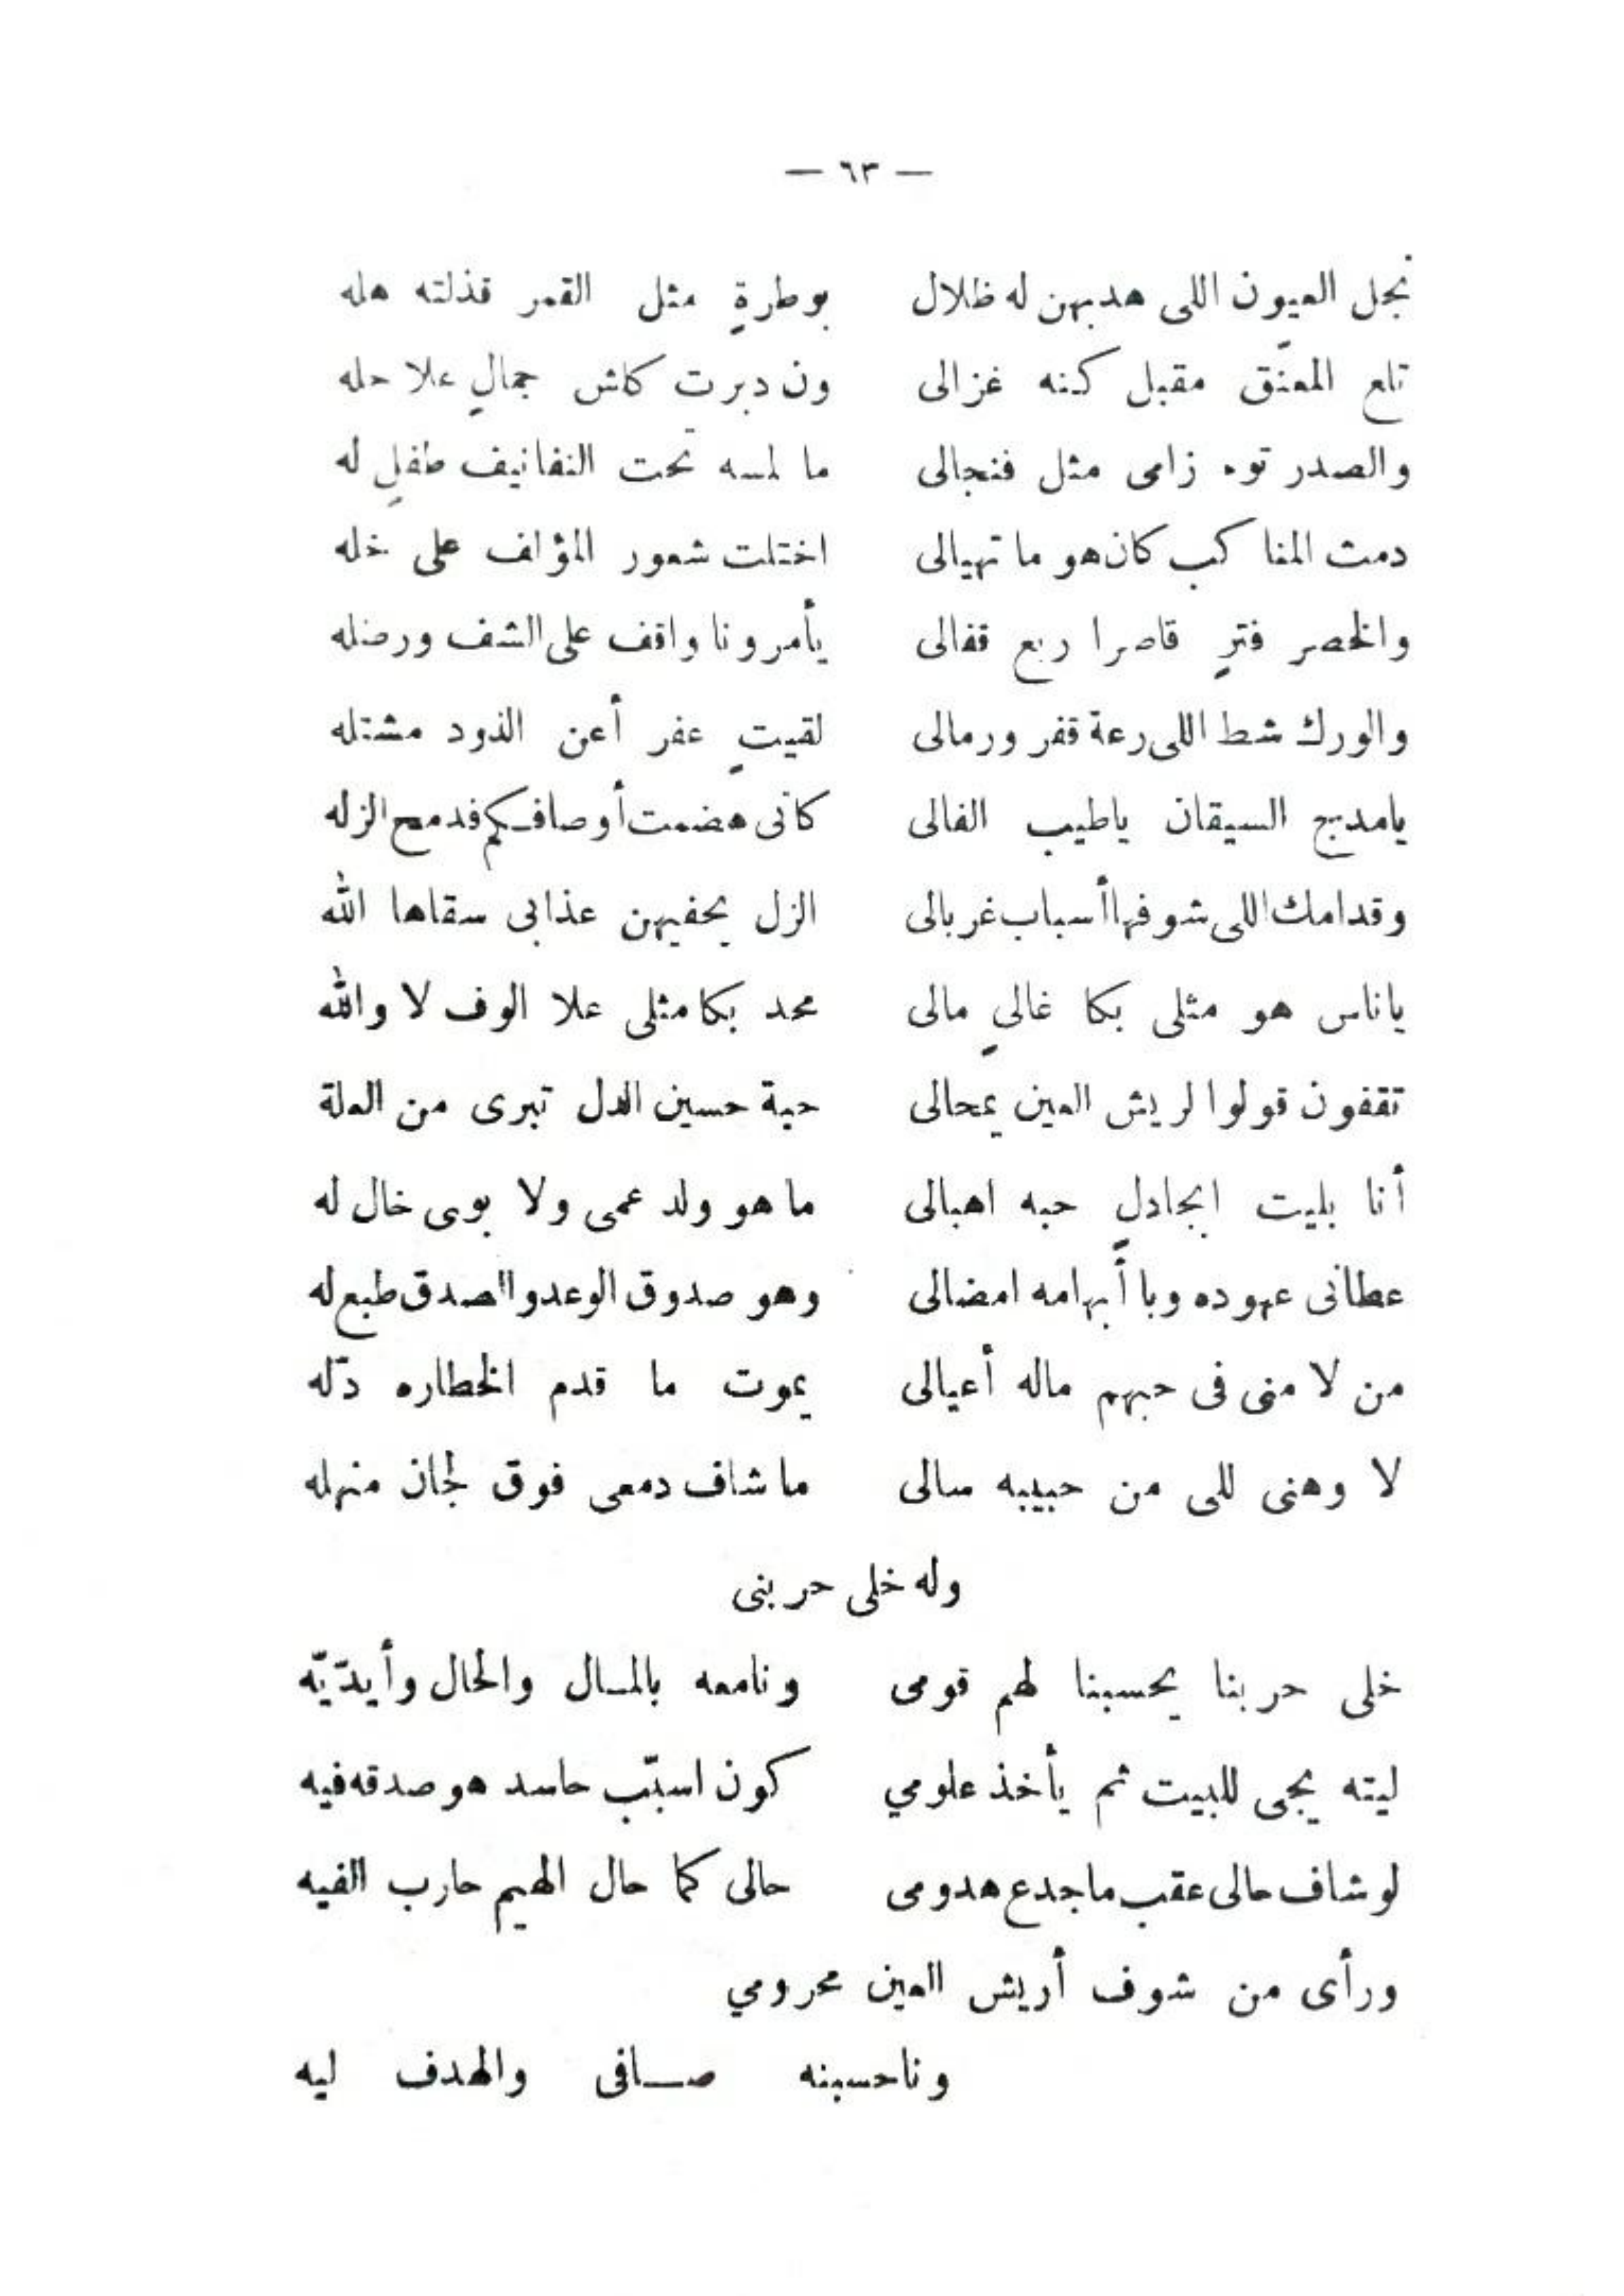 — ٦٣ —
نجل العيون اللى هدبهن له ظلال بوطرةٍ مثل القمر قذلته هله
تلع المعنّق مقبل كنه غزالى ون دبرت كاش جمالٍ علا حله
والصدر توه زامى مثل فنجالى ما لمسه تحت النفانيف طفلٍ له
دمث المناكب كان هو ما تهيالى اختلت شعور المؤلف على خله
والخصر فترٍ قاصرا ربع قفالى يأمرونا واقف على الشف ورضله
والورك شط اللى رعة قفر ورمالى لقيتٍ عفر أعن الذود مشتله
يامدبج السيقان ياطيب الفالى كانى هضمت أوصافكم فدمح الزله
وقدامك اللى شوفها أسباب غربالى الزل يحفيهن عذابى سقاها الله
ياناس هو مثلى بكا غالىٍ مالى محد بكا مثلى علا الوف لا والله
تقفون قولوا لريش العين يمحالى حبة حسين الدل تبرى من العلة
أنا بليت ابجادلٍ حبه اهبالى ما هو ولد عمى ولا بوى خال له
عطانى عهوده وبا أبهامه امضالى وهو صدوق الوعد والصدق طبع له
من لا منى فى حبهم ماله أعيالى يموت ما قدم الخطاره دلّه
لا وهنى للى من حبيبه سالى ما شاف دمعى فوق لجان منهله
وله خلى حربنى
خلى حربنا يحسبنا لهم قومى ونامعه بالمال والحال وأيديّه
ليته يجى للبيت ثم يأخذ علومي كون اسبّب حاسد هو صدقه فيه
لو شاف حالى عقب ماجدع هدومى حالى كما حال الهيم حارب الفيه
ورأى من شوف أريش العين محرومي
وناحسبنه صافى والهدف ليه